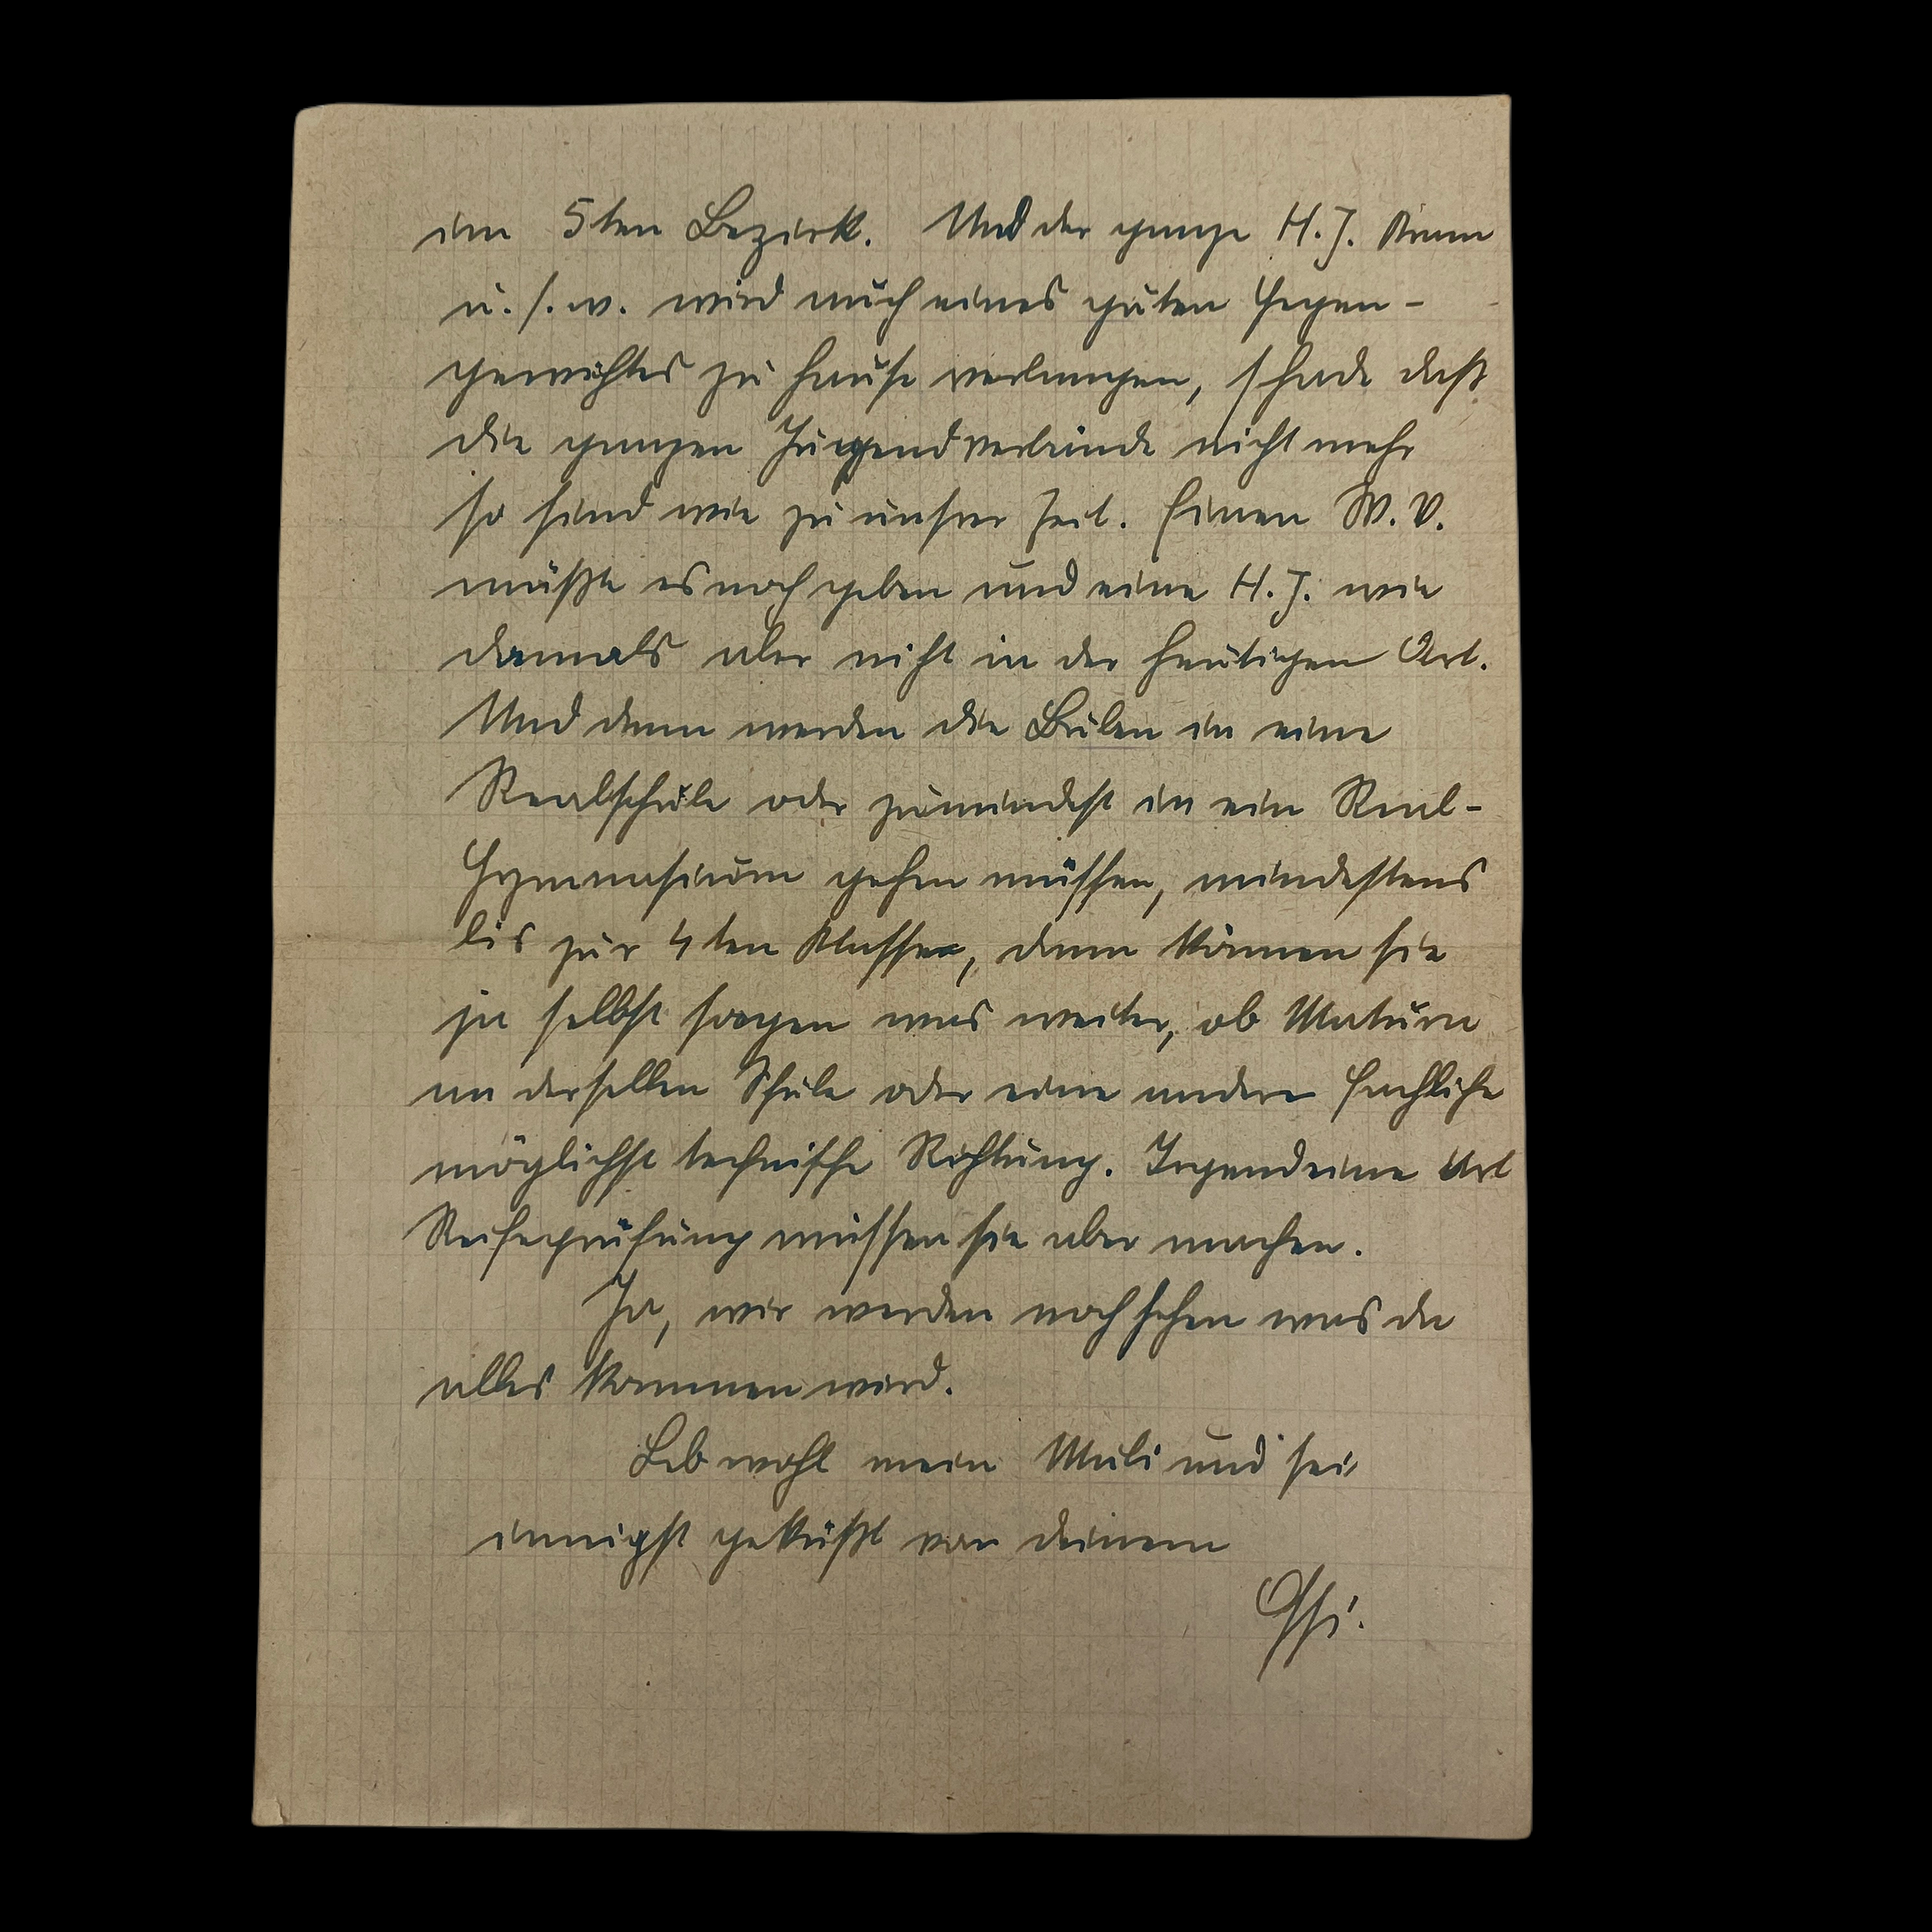 im 5ten Bezirk. Und der ganze H.J. Kram
u.s.w. wird auch eines guten Gegen-
gewichtes zu Hause verlangen, schade daß
die ganzen Jugendverbände nicht mehr
so sind wie zu unsrer Zeit. Einen W.V.
müßte es noch geben und eine H.J. wie
damals aber nicht in der heutigen Art.
Und dann werden die Buben in eine
Realschule oder zumindest in ein Real-
Gymnasium gehen müssen, mindestens
bis zur 4ten Klasse, dann können sie
ja selbst sagen was weiter, ob Matura
an derselben Schule oder eine andere fachliche
möglichst technische Richtung. Irgendeine Art
Reifeprüfung müssen sie aber machen.
Ja, wir werden noch sehen was da
alles kommen wird.
Leb wohl mein Muli und sei
innigst geküßt von deinem
Ossi.